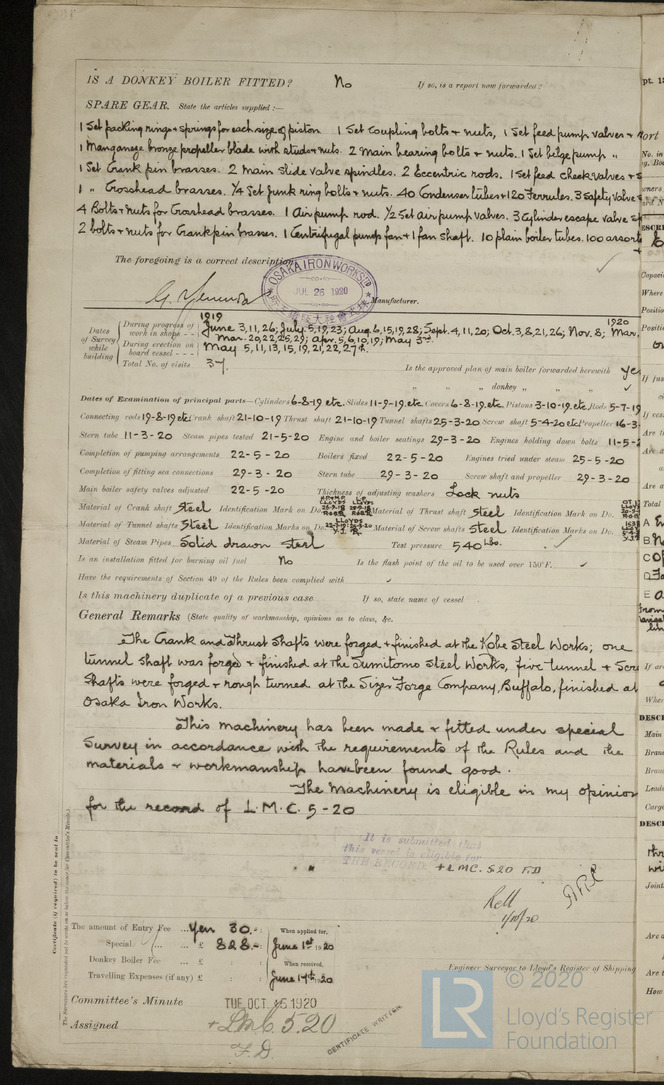 IS A DONKEY BOILER FITTED? No If so, is a report now forwarded?
SPARE GEAR. State the articles supplied :—
1 Set packing rings + springs for each size of piston 1 Set Coupling bolts + nuts, 1 Set feed pump valves +
1 Manganese bronze propeller blade with studs + nuts. 2 Main bearing bolts + nuts. 1 Set bilge pump "
1 Set Crank pin brasses. 2 Main Slide valve spindles. 2 Eccentric rods. 1 Set feed check valves +
1 " Crosshead brasses. ¼ Set Junk ring bolts + nuts. 40 Condenser tubes + 120 Ferrules. 3 Safety valve
4 Bolts + nuts for Crosshead brasses. 1 Air pump rod. ½ Set air pump valves. 3 Cylinder escape valve
2 bolts + nuts for Crankpin brasses. 1 Centrifugal pump fan + 1 fan shaft. 10 plain boiler tubes. 100 assort
The foregoing is a correct description,
OSAKA IRON WORKS LTD
JUL 26 1920
Manufacturer.
1919 1920
Dates of Survey while building
During progress of work in shops - - June 3, 11, 26; July 5, 19, 23; Aug. 6, 15, 19, 28; Sept. 4, 11, 20; Oct. 3, 8, 21, 26; Nov. 8; Mar.
Mar. 20, 22, 25, 29; Apr. 5, 6, 10, 19; May 3rd.
During erection on board vessel - - - May 5, 11, 13, 15, 19, 21, 22, 27th.
Total No. of visits 37.
Is the approved plan of main boiler forwarded herewith Yes
" " " donkey " " ✓
Dates of Examination of principal parts—Cylinders 6-8-19 etc. Slides 11-9-19 etc. Covers 6-8-19 etc. Pistons 3-10-19 etc. Rods 5-7-19
Connecting rods 19-8-19 etc. Crank shaft 21-10-19 Thrust shaft 21-10-19 Tunnel shafts 25-3-20 Screw shaft 5-4-20 etc. Propeller 16-3-
Stern tube 11-3-20 Steam pipes tested 21-5-20 Engine and boiler seatings 29-3-20 Engines holding down bolts 11-5-2
Completion of pumping arrangements 22-5-20 Boilers fixed 22-5-20 Engines tried under steam 25-5-20
Completion of fitting sea connections 29-3-20 Stern tube 29-3-20 Screw shaft and propeller 29-3-20
Main boiler safety valves adjusted 22-5-20 Thickness of adjusting washers Lock nuts
Material of Crank shaft Steel Identification Mark on Do. LLOYDS Material of Thrust shaft Steel Identification Mark on Do.
Material of Tunnel shafts Steel Identification Marks on Do. LLOYDS Material of Screw shafts Steel Identification Marks on Do.
Material of Steam Pipes Solid drawn steel Test pressure 540 lbs. ✓
Is an installation fitted for burning oil fuel No Is the flash point of the oil to be used over 150°F. ✓
Have the requirements of Section 49 of the Rules been complied with ✓
Is this machinery duplicate of a previous case If so, state name of vessel
General Remarks (State quality of workmanship, opinions as to class, &c.
The Crank and Thrust Shafts were forged + finished at the Kobe Steel Works; one
tunnel shaft was forged + finished at the Sumitomo Steel Works, five tunnel + Scre
Shafts were forged + rough turned at the Sizer Forge Company, Buffalo, finished at
Osaka Iron Works.
This machinery has been made + fitted under special
Survey in accordance with the requirements of the Rules and the
materials + workmanship have been found good.
The machinery is eligible in my opinion
for the record of L.M.C. 5-20
It is submitted that
this vessel is eligible for
THE RECORD. + LMC. 5.20 F.D
The amount of Entry Fee ... Yen 30. - : When applied for,
Special ... ... £ 828. - : June 1st 1920
Donkey Boiler Fee ... £ : : When received,
Travelling Expenses (if any) £ : : June 14th 1920
Engineer Surveyor to Lloyd's Register of Shipping
Committee's Minute TUE. OCT. 5 1920
Assigned + LMC 5.20
F.D.
CERTIFICATE WRITTEN
Certificate (if required) to be sent to
© 2020
LR Lloyd's Register
Foundation